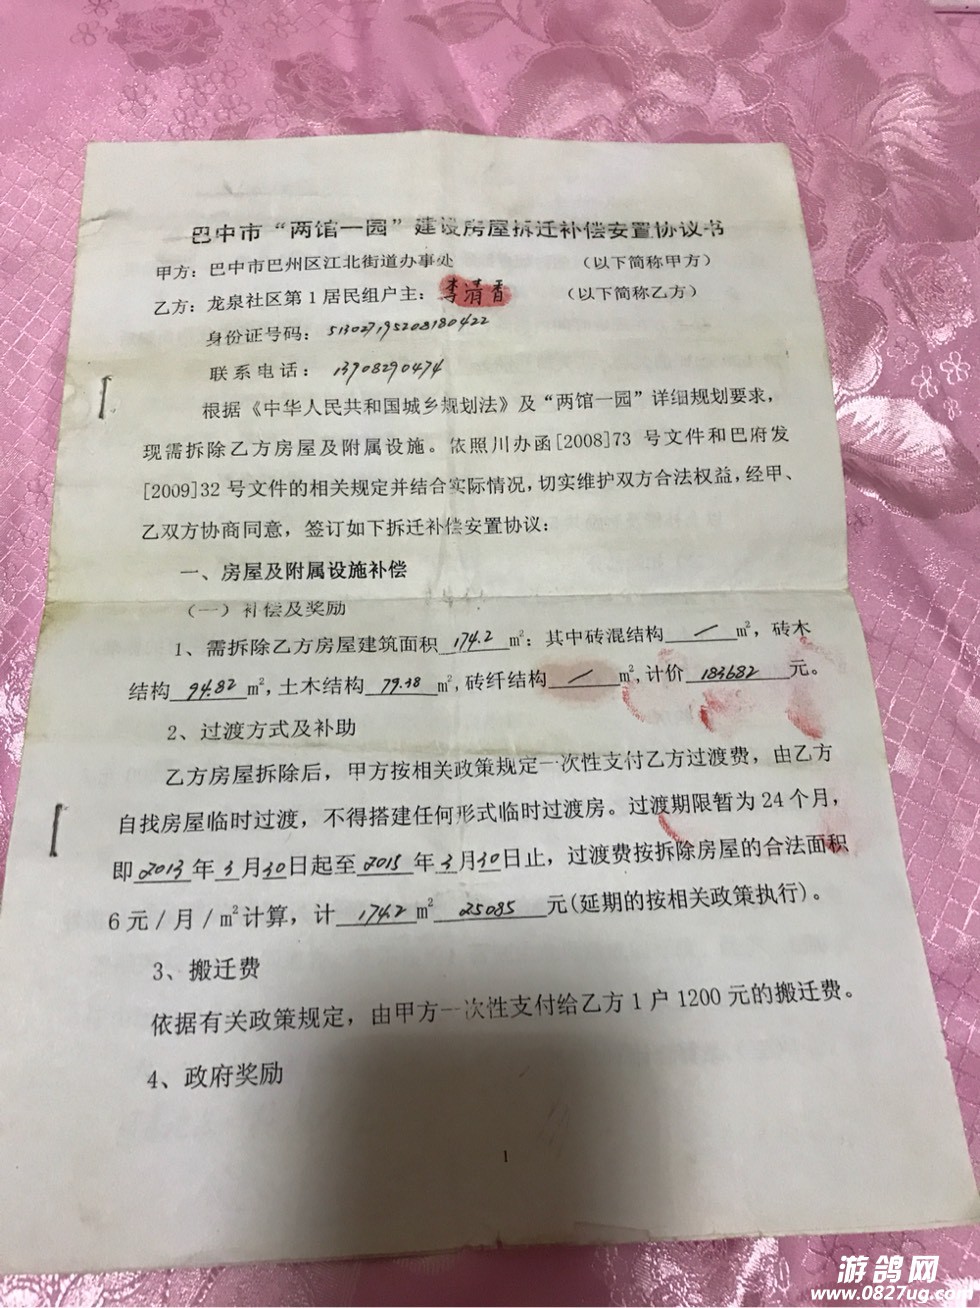 巴中市“两馆一园”建设房屋拆迁补偿安置协议书
甲方：巴中市巴州区江北街道办事处 （以下简称甲方）
乙方：龙泉社区第1居民组户主：李清香 （以下简称乙方）
身份证号码：513027195208180422
联系电话：13908290474
根据《中华人民共和国城乡规划法》及“两馆一园”详细规划要求，
现需拆除乙方房屋及附属设施。依照川办函[2008]73 号文件和巴府发
[2009]32 号文件的相关规定并结合实际情况，切实维护双方合法权益，经甲、
乙双方协商同意，签订如下拆迁补偿安置协议：
一、房屋及附属设施补偿
（一）补偿及奖励
1、需拆除乙方房屋建筑面积 174.2 m²：其中砖混结构 / m²，砖木
结构 94.82 m²，土木结构 79.38 m²，砖纤结构 / m²，计价 183682 元。
2、过渡方式及补助
乙方房屋拆除后，甲方按相关政策规定一次性支付乙方过渡费，由乙方
自找房屋临时过渡，不得搭建任何形式临时过渡房。过渡期限暂为 24 个月，
即 2013 年 3 月 30 日起至 2015 年 3 月 30 日止，过渡费按拆除房屋的合法面积
6 元/月/m²计算，计 174.2 m² 25085 元(延期的按相关政策执行)。
3、搬迁费
依据有关政策规定，由甲方一次性支付给乙方 1 户 1200 元的搬迁费。
4、政府奖励
1
游鸽网
www.0827ug.com